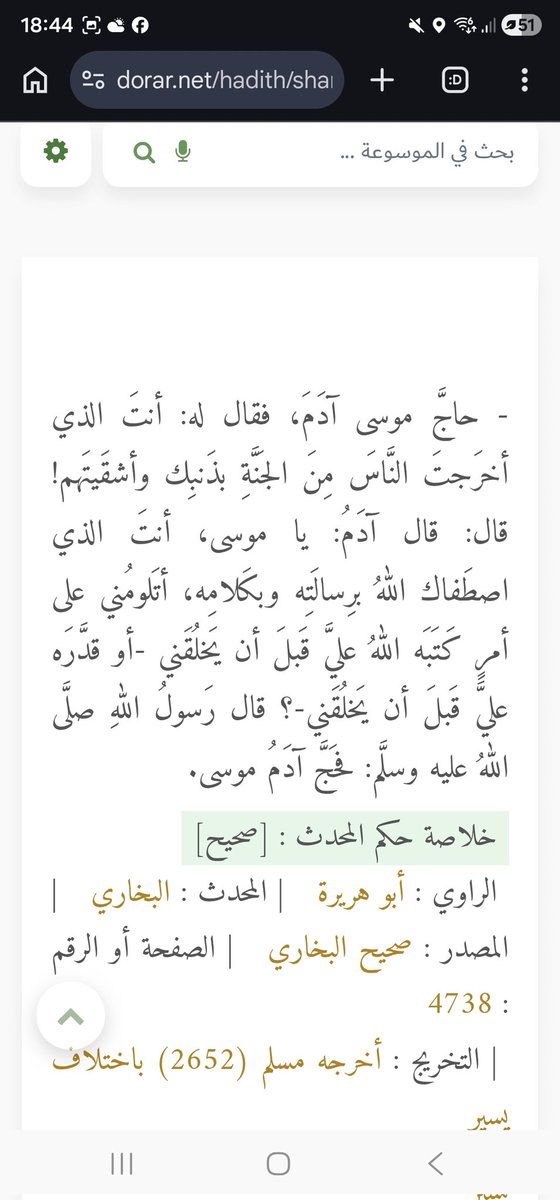 18:44
51
dorar.net/hadith/shar
:D
بحث في الموسوعة ...
- حاجَّ موسى آدَمَ، فقال له: أنتَ الذي
أخرَجتَ النَّاسَ مِنَ الجَنَّةِ بذَنبِك وأشقَيتَهم!
قال: قال آدَمُ: يا موسى، أنتَ الذي
اصطَفاك اللهُ برِسالَتِه وبكَلامِه، أتَلومُني على
أمرٍ كَتَبَه اللهُ عليَّ قَبلَ أن يَخلُقَني -أو قدَّرَه
عليَّ قَبلَ أن يَخلُقَني-؟ قال رَسولُ اللهِ صلَّى
اللهُ عليه وسلَّم: فحَجَّ آدَمُ موسى.
خلاصة حكم المحدث : [صحيح]
الراوي : أبو هريرة | المحدث : البخاري |
المصدر : صحيح البخاري | الصفحة أو الرقم
: 4738
| التخريج : أخرجه مسلم (2652) باختلاف
يسير